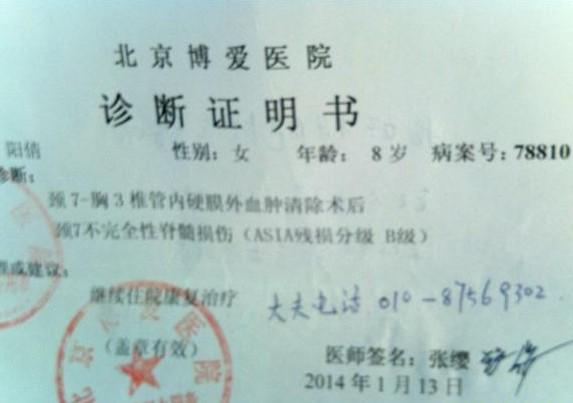 北京博爱医院
诊断证明书
阳倩 性别: 女 年龄: 8岁 病案号: 78810
诊断:
颈7-胸3椎管内硬膜外血肿清除术后
颈7不完全性脊髓损伤（ASIA残损分级 B级）
理或建议:
继续住院康复治疗 大夫电话 010-87569302
（盖章有效）
医师签名: 张缨
2014年1月13日